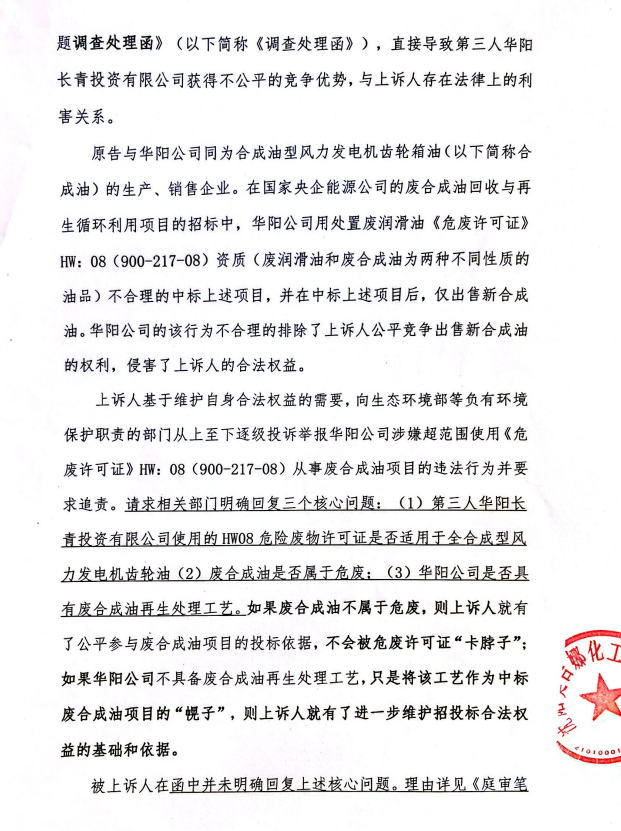 题调查处理函》（以下简称《调查处理函》），直接导致第三人华阳
长青投资有限公司获得不公平的竞争优势，与上诉人存在法律上的利
害关系。
原告与华阳公司同为合成油型风力发电机齿轮箱油（以下简称合
成油）的生产、销售企业。在国家央企能源公司的废合成油回收与再
生循环利用项目的招标中，华阳公司用处置废润滑油《危废许可证》
HW：08（900-217-08）资质（废润滑油和废合成油为两种不同性质的
油品）不合理的中标上述项目，并在中标上述项目后，仅出售新合成
油。华阳公司的该行为不合理的排除了上诉人公平竞争出售新合成油
的权利，侵害了上诉人的合法权益。
上诉人基于维护自身合法权益的需要，向生态环境部等负有环境
保护职责的部门从上至下逐级投诉举报华阳公司涉嫌超范围使用《危
废许可证》HW：08（900-217-08）从事废合成油项目的违法行为并要
求追责。请求相关部门明确回复三个核心问题：（1）第三人华阳长
青投资有限公司使用的HW08危险废物许可证是否适用于全合成型风
力发电机齿轮油（2）废合成油是否属于危废；（3）华阳公司是否具
有废合成油再生处理工艺。如果废合成油不属于危废，则上诉人就有
了公平参与废合成油项目的投标依据，不会被危废许可证“卡脖子”；
如果华阳公司不具备废合成油再生处理工艺，只是将该工艺作为中标
废合成油项目的“幌子”，则上诉人就有了进一步维护招投标合法权
益的基础和依据。
被上诉人在函中并未明确回复上述核心问题。理由详见《庭审笔
化工